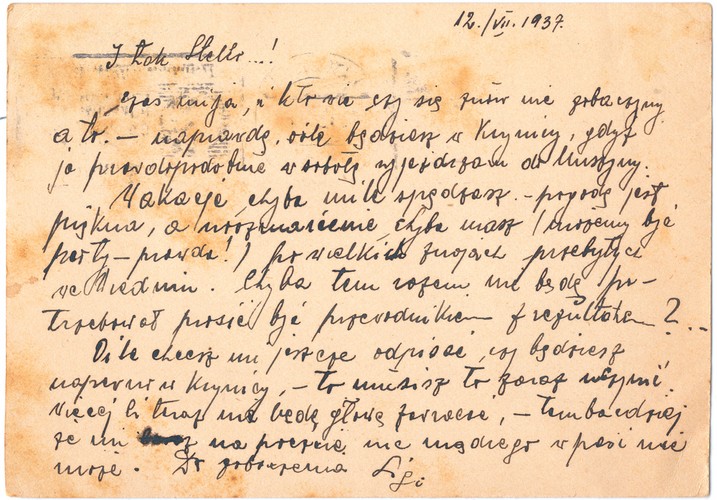 12./VII. 1937.
I tak Hello...!
czas mija, i kto wie czy się znów nie zobaczymy
a to. – naprawdę, o ile będziesz w Krynicy, gdyż
ja prawdopodobnie w sobotę wyjeżdżam do Muszyny.
Wakacje chyba mile spędzasz. – pogoda jest
piękna, a urozmaicenie chyba masz (możemy być
party – prawda!) po wielkich znojach przebytych
we Wiedniu. Chyba tem razem nie będę po-
trzebował prosić być przewodnikiem z rezultatem?..
O ile chcesz mi jeszcze odpisać, czy będziesz
napewno w Krynicy, – to musisz to zaraz uczynić
więcej Ci teraz nie będę głowę zawracać, – tembardziej
że mi na poczcie nic mądrego wpaść nie
może. Do zobaczenia